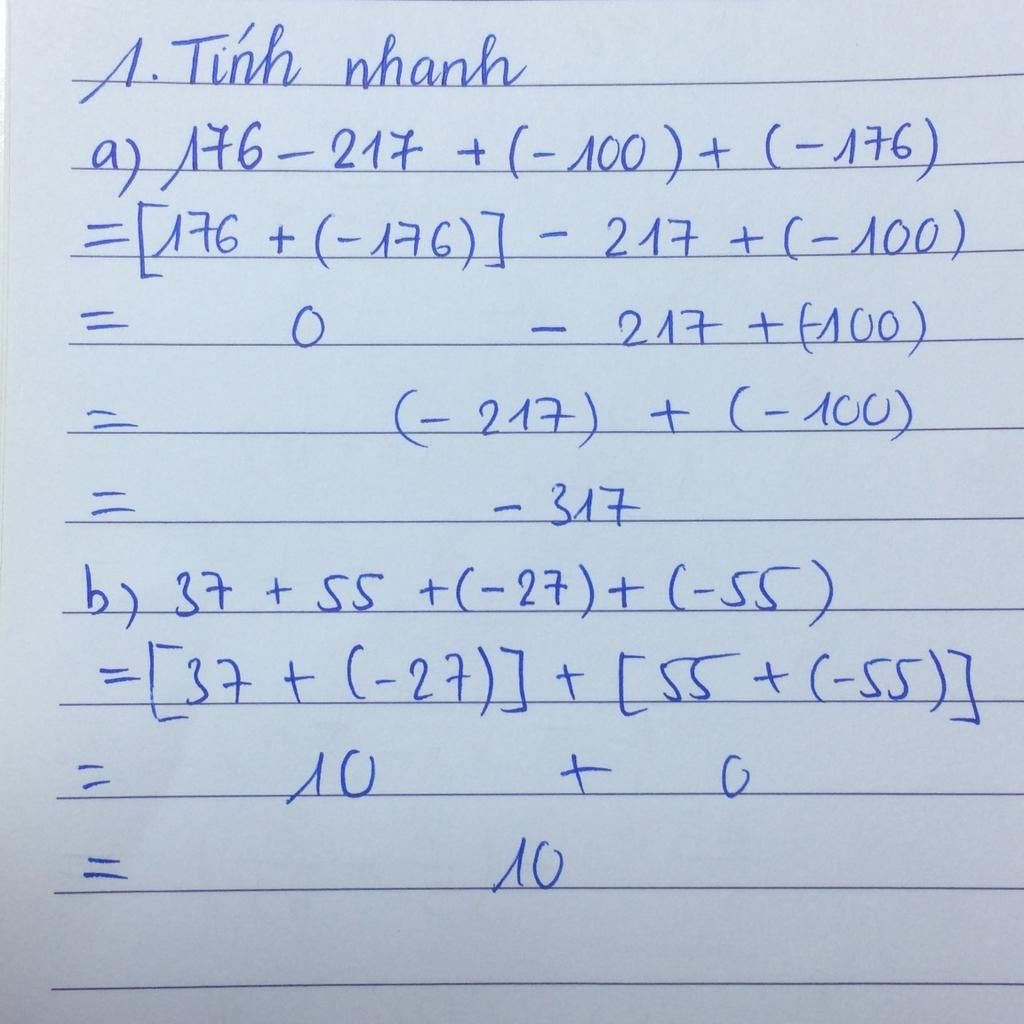 1. Tính nhanh
a) 176 - 217 + (-100) + (-176)
= [176 + (-176)] - 217 + (-100)
= 0 - 217 + (-100)
= (-217) + (-100)
= - 317
b) 37 + 55 + (-27) + (-55)
= [37 + (-27)] + [55 + (-55)]
= 10 + 0
= 10